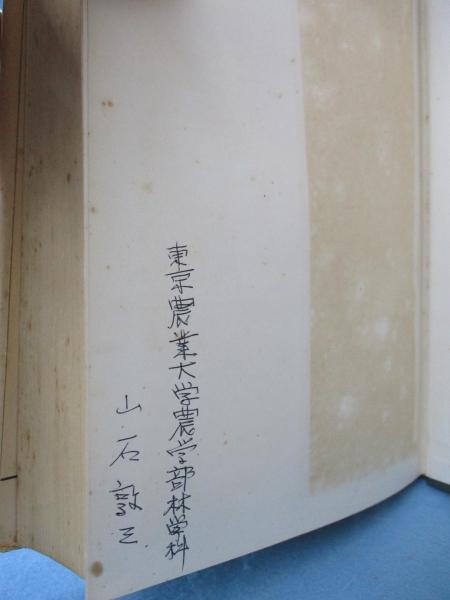 東京農業大学農学部林学科
山石